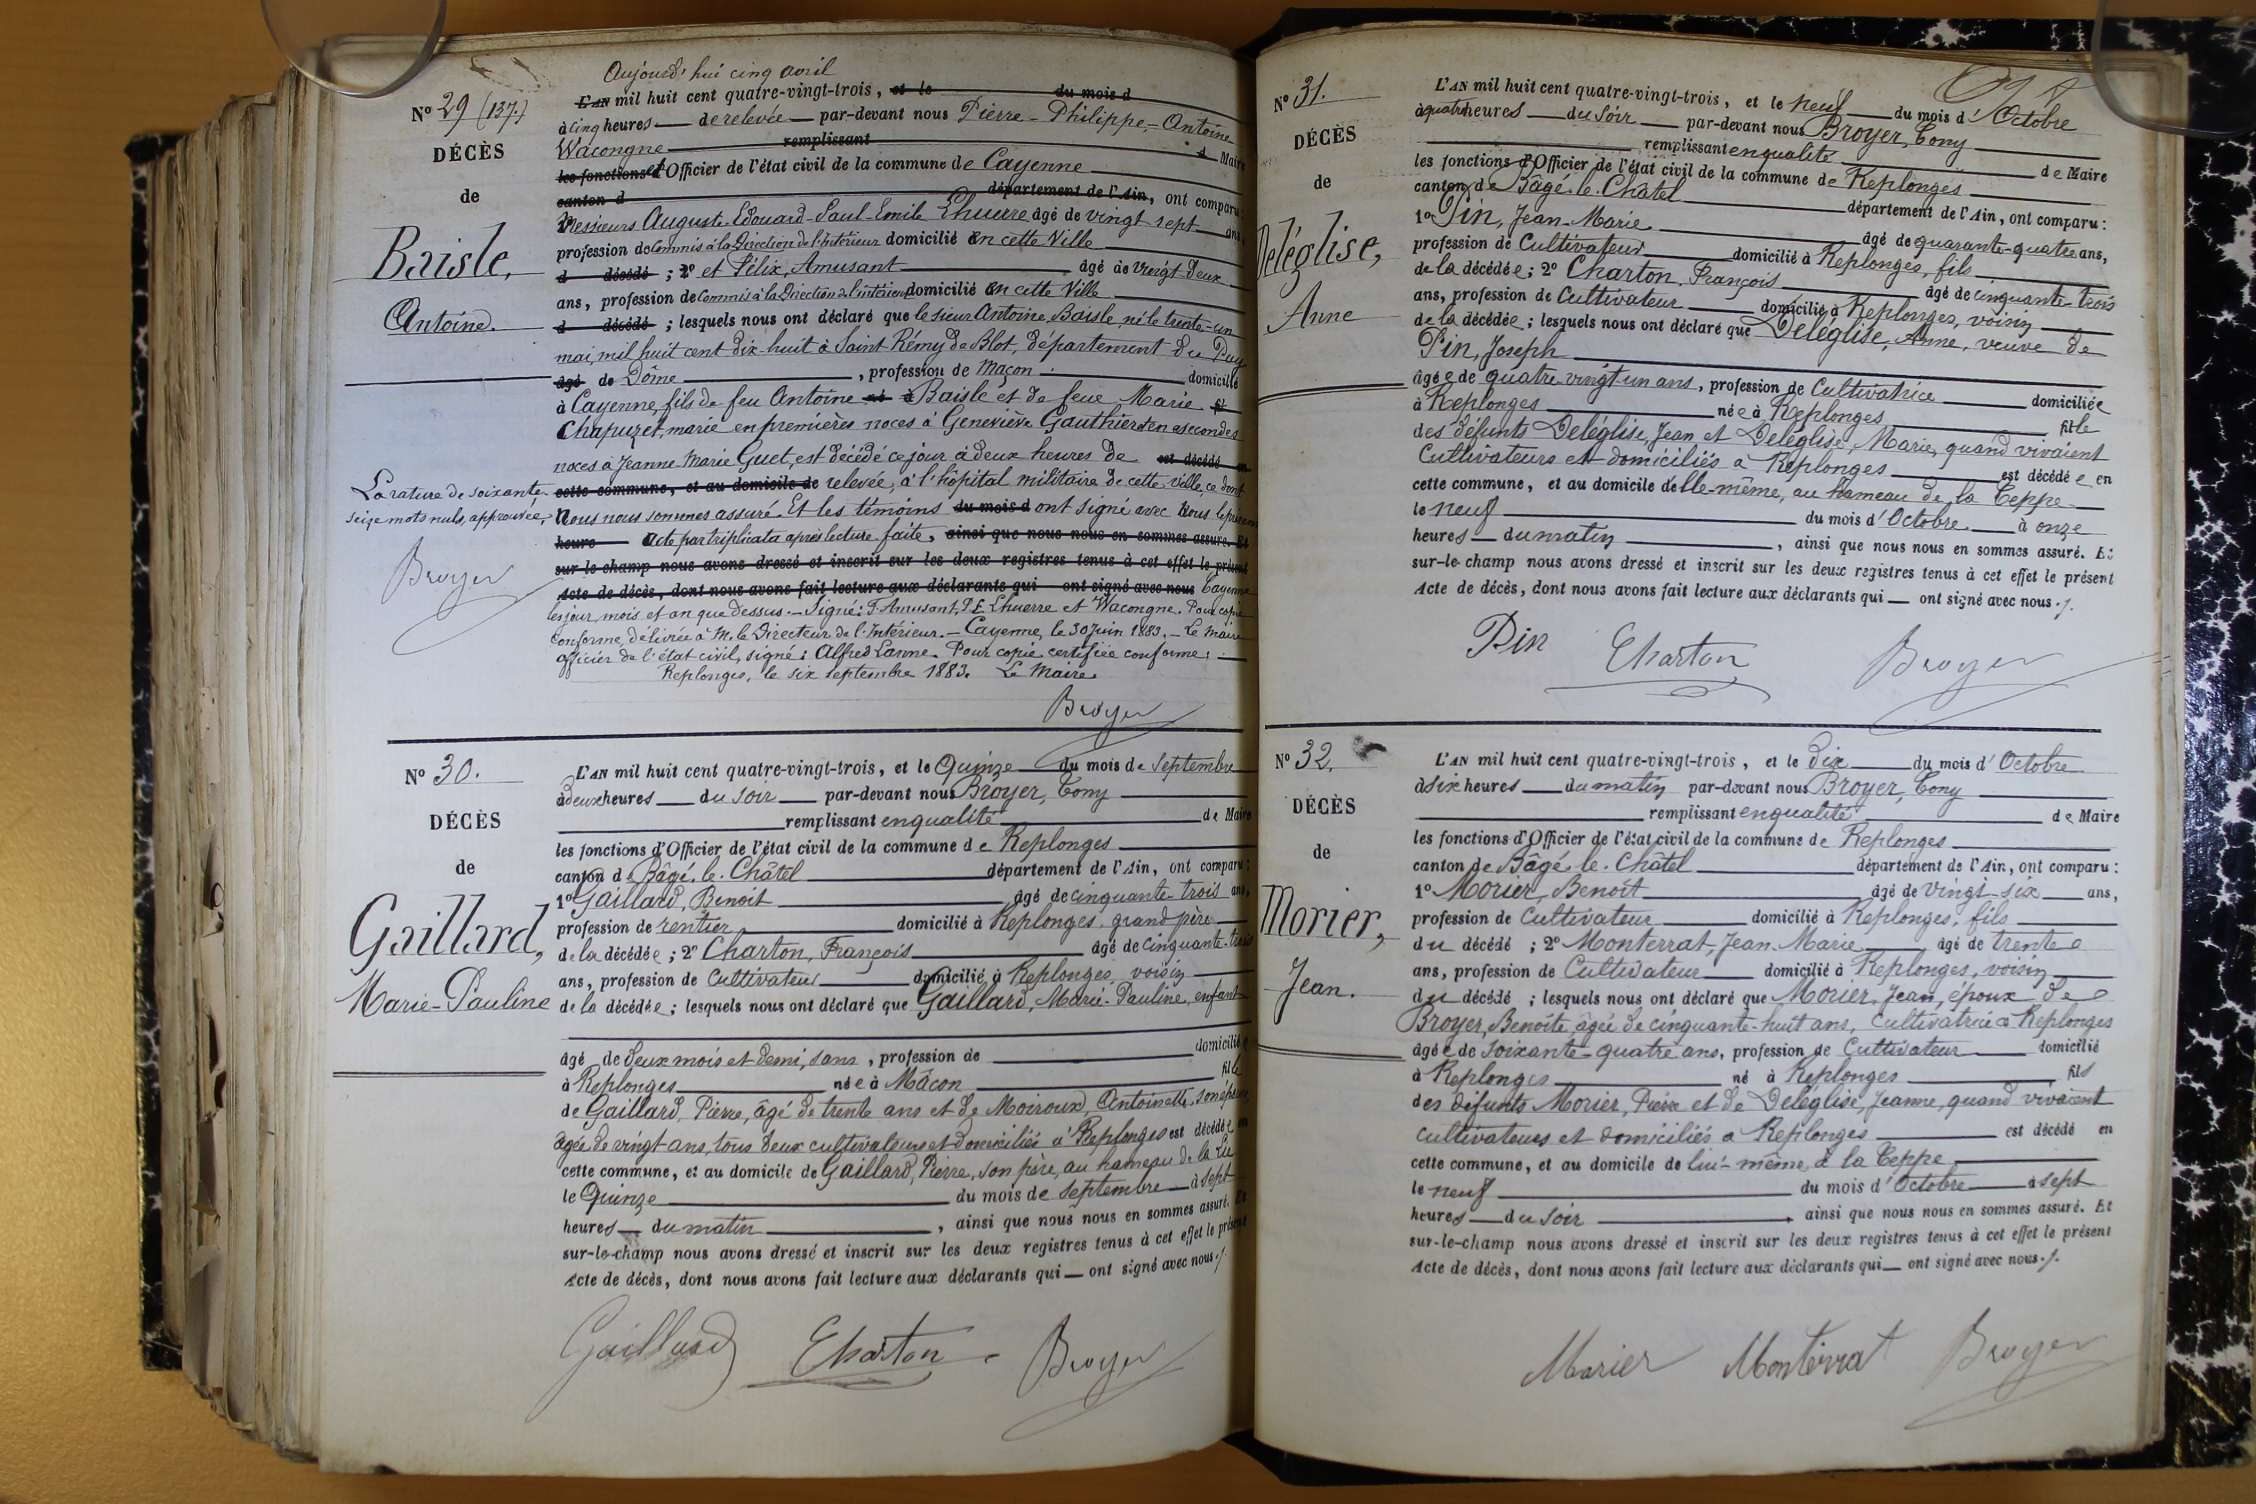 Aujourd'hui cinq avril
N° 29 (137.)
L'AN mil huit cent quatre-vingt-trois, et le du mois d
à cinq heures de relevée par-devant nous Pierre-Philippe-Antoine
Wacongne remplissant d Maire
DÉCÈS
les fonctions et d'Officier de l'état civil de la commune de Cayenne
de
canton d département de l'Ain, ont comparu:
Messieurs Auguste-Edouard-Paul-Emile Lhuerre âgé de vingt sept ans,
Baisle,
profession de Commis à la Direction de l'Intérieur domicilié en cette Ville
d décédé; 2° et Félix, Amusant âgé de vingt deux
ans, profession de Commis à la Direction de l'intérieur domicilié en cette Ville
Antoine.
d décédé; lesquels nous ont déclaré que le sieur Antoine Baisle, né le trente-un
mai, mil huit cent dix-huit à Saint Rémy de Blot, département du Puy
âgé de Dôme, profession de Maçon domicilié
à Cayenne, fils de feu Antoine né à Baisle et de feue Marie fi
Chapuzet, marié en premières noces à Geneviève Gauthier et en secondes
noces à Jeanne Marie Guet, est décédé ce jour à deux heures de est décédé en
La rature de soixante-
cette commune, et au domicile de relevée, à l'hôpital militaire de cette ville, ce dont
seize mots nuls, approuvée,
Nous nous sommes assuré. Et les témoins du mois d ont signé avec Nous le présent
heure acte par triplicata après lecture faite, ainsi que nous nous en sommes assuré. Et
Broyer
sur-le-champ nous avons dressé et inscrit sur les deux registres tenus à cet effet le présent
Acte de décès, dont nous avons fait lecture aux déclarants qui ont signé avec nous Cayenne
les jour, mois et an que dessus. - Signé: F. Amusant, P.E. Lhuerre et Wacongne. Pour copie
conforme, délivrée à M. le Directeur de l'Intérieur. - Cayenne, le 30 Juin 1883. - Le Maire
officier de l'état civil, signé: Alfred Lanne. Pour copie certifiée conforme:
Replonges, le six septembre 1883. Le Maire.
Broyer
N° 30.
L'AN mil huit cent quatre-vingt-trois, et le Quinze du mois de Septembre
à deux heures du soir par-devant nous Broyer, Tony
DÉCÈS
remplissant en qualité de Maire
les fonctions d'Officier de l'état civil de la commune de Replonges
de
canton de Bâgé-le-Châtel département de l'Ain, ont comparu:
1° Gaillard, Benoit âgé de cinquante-trois ans,
Gaillard,
profession de rentier domicilié à Replonges, grand père
de la décédée; 2° Charton, François âgé de cinquante-trois
ans, profession de Cultivateur domicilié à Replonges, voisin
Marie-Pauline
de la décédée; lesquels nous ont déclaré que Gaillard, Marie-Pauline, enfant
âgé de deux mois et demi, sans, profession de domiciliée
à Replonges née à Mâcon fille
de Gaillard, Pierre, âgé de trente ans et de Moiroux, Antoinette, son épouse
âgée de vingt ans, tous deux cultivateurs et domiciliés à Replonges est décédée en
cette commune, et au domicile de Gaillard, Pierre, son père, au hameau de la
le Quinze du mois de Septembre à sept
heures du matin, ainsi que nous nous en sommes assuré. Et
sur-le-champ nous avons dressé et inscrit sur les deux registres tenus à cet effet le présent
Acte de décès, dont nous avons fait lecture aux déclarants qui ont signé avec nous./.
Gaillard Charton Broyer
N° 31.
L'AN mil huit cent quatre-vingt-trois, et le neuf du mois d'Octobre
à quatre heures du soir par-devant nous Broyer, Tony
DÉCÈS
remplissant en qualité de Maire
les fonctions d'Officier de l'état civil de la commune de Replonges
de
canton de Bâgé-le-Châtel département de l'Ain, ont comparu:
1° Pin, Jean-Marie âgé de quarante-quatre ans,
Deléglise,
profession de Cultivateur domicilié à Replonges, fils
de la décédée; 2° Charton, François âgé de cinquante-trois
ans, profession de Cultivateur domicilié à Replonges, voisin
Anne
de la décédée; lesquels nous ont déclaré que Deléglise, Anne, veuve de
Pin, Joseph
âgée de quatre vingt-un ans, profession de Cultivatrice domiciliée
à Replonges née à Replonges fille
des défunts Deléglise, Jean et Deléglise, Marie, quand vivaient
Cultivateurs et domiciliés à Replonges est décédée en
cette commune, et au domicile d'elle-même, au hameau de la Teppe
le neuf du mois d'Octobre à onze
heures du matin, ainsi que nous nous en sommes assuré. Et
sur-le-champ nous avons dressé et inscrit sur les deux registres tenus à cet effet le présent
Acte de décès, dont nous avons fait lecture aux déclarants qui ont signé avec nous./.
Pin Charton Broyer
N° 32.
L'AN mil huit cent quatre-vingt-trois, et le dix du mois d'Octobre
à six heures du matin par-devant nous Broyer, Tony
DÉCÈS
remplissant en qualité de Maire
les fonctions d'Officier de l'état civil de la commune de Replonges
de
canton de Bâgé-le-Châtel département de l'Ain, ont comparu:
1° Morier, Benoit âgé de vingt-six ans,
Morier,
profession de Cultivateur domicilié à Replonges, fils
du décédé; 2° Monterrat, Jean-Marie âgé de trente
ans, profession de Cultivateur domicilié à Replonges, voisin
Jean.
du décédé; lesquels nous ont déclaré que Morier, Jean, époux de
Broyer, Benoite, âgée de cinquante-huit ans, Cultivatrice à Replonges
âgé de soixante-quatre ans, profession de Cultivateur domicilié
à Replonges né à Replonges fils
des défunts Morier, Pierre et de Deléglise, Jeanne, quand vivaient
cultivateurs et domiciliés à Replonges est décédé en
cette commune, et au domicile de lui-même, à la Teppe
le neuf du mois d'Octobre à sept
heures du soir, ainsi que nous nous en sommes assuré. Et
sur-le-champ nous avons dressé et inscrit sur les deux registres tenus à cet effet le présent
Acte de décès, dont nous avons fait lecture aux déclarants qui ont signé avec nous./.
Morier Monterrat Broyer